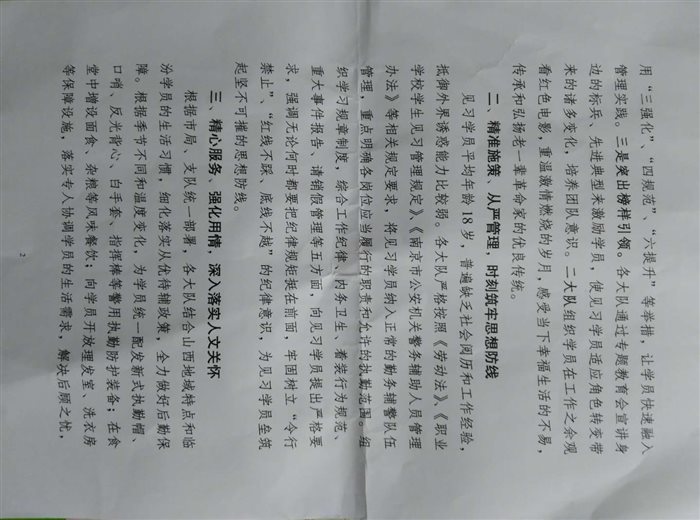 用“三强化”、“四规范”、“六提升”等举措，让学员快速融入
管理实践。三是突出榜样引领。各大队通过专题教育会宣讲身
边的标兵、先进典型来激励学员，使见习学员适应角色转变带
来的诸多变化，培养团队意识。二大队组织学员在工作之余观
看红色电影，重温激情燃烧的岁月，感受当下幸福生活的不易，
传承和弘扬老一辈革命家的优良传统。
二、精准施策、从严管理，时刻筑牢思想防线
见习学员平均年龄18岁，普遍缺乏社会阅历和工作经验，
抵御外界诱惑能力比较弱。各大队严格按照《劳动法》、《职业
学校学生见习管理规定》、《南京市公安机关警务辅助人员管理
办法》等相关规定要求，将见习学员纳入正常的勤务辅警队伍
管理，重点明确各岗位应当履行的职责和允许的执勤范围。组
织学习规章制度，综合工作纪律、内务卫生、着装行为规范、
重大事件报告、请销假管理等五方面，向见习学员提出严格要
求，强调无论何时都要把纪律规矩挺在前面，牢固树立“令行
禁止”、“红线不踩、底线不越”的纪律意识，为见习学员垒筑
起坚不可摧的思想防线。
三、精心服务、强化用情，深入落实人文关怀
根据市局、支队统一部署，各大队结合山西地域特点和临
汾学员的生活习惯，细化落实从优待辅政策，全力做好后勤保
障。根据季节不同和温度变化，为学员统一配发新式执勤帽、
口哨、反光背心、白手套、指挥棒等警用执勤防护装备；在食
堂中增设面食、杂粮等风味餐饮；向学员开放理发室、洗衣房
等保障设施，落实专人协调学员的生活需求，解决后顾之忧，
2